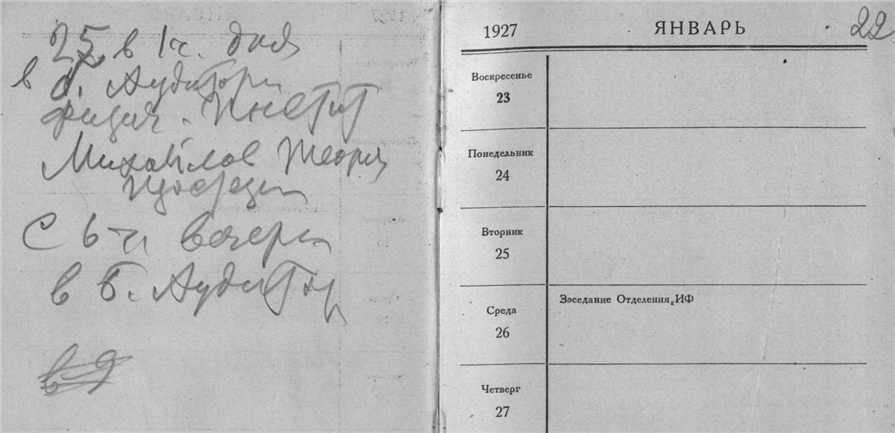 25 в 1 ч. дня
в б. Аудитори
физич. Инстит
Михайлов Теория
С 6 ч вечера
в б. Аудитор
1927 ЯНВАРЬ 22
Воскресенье
23
Понедельник
24
Вторник
25
Среда
26
Заседание Отделения ИФ
Четверг
27